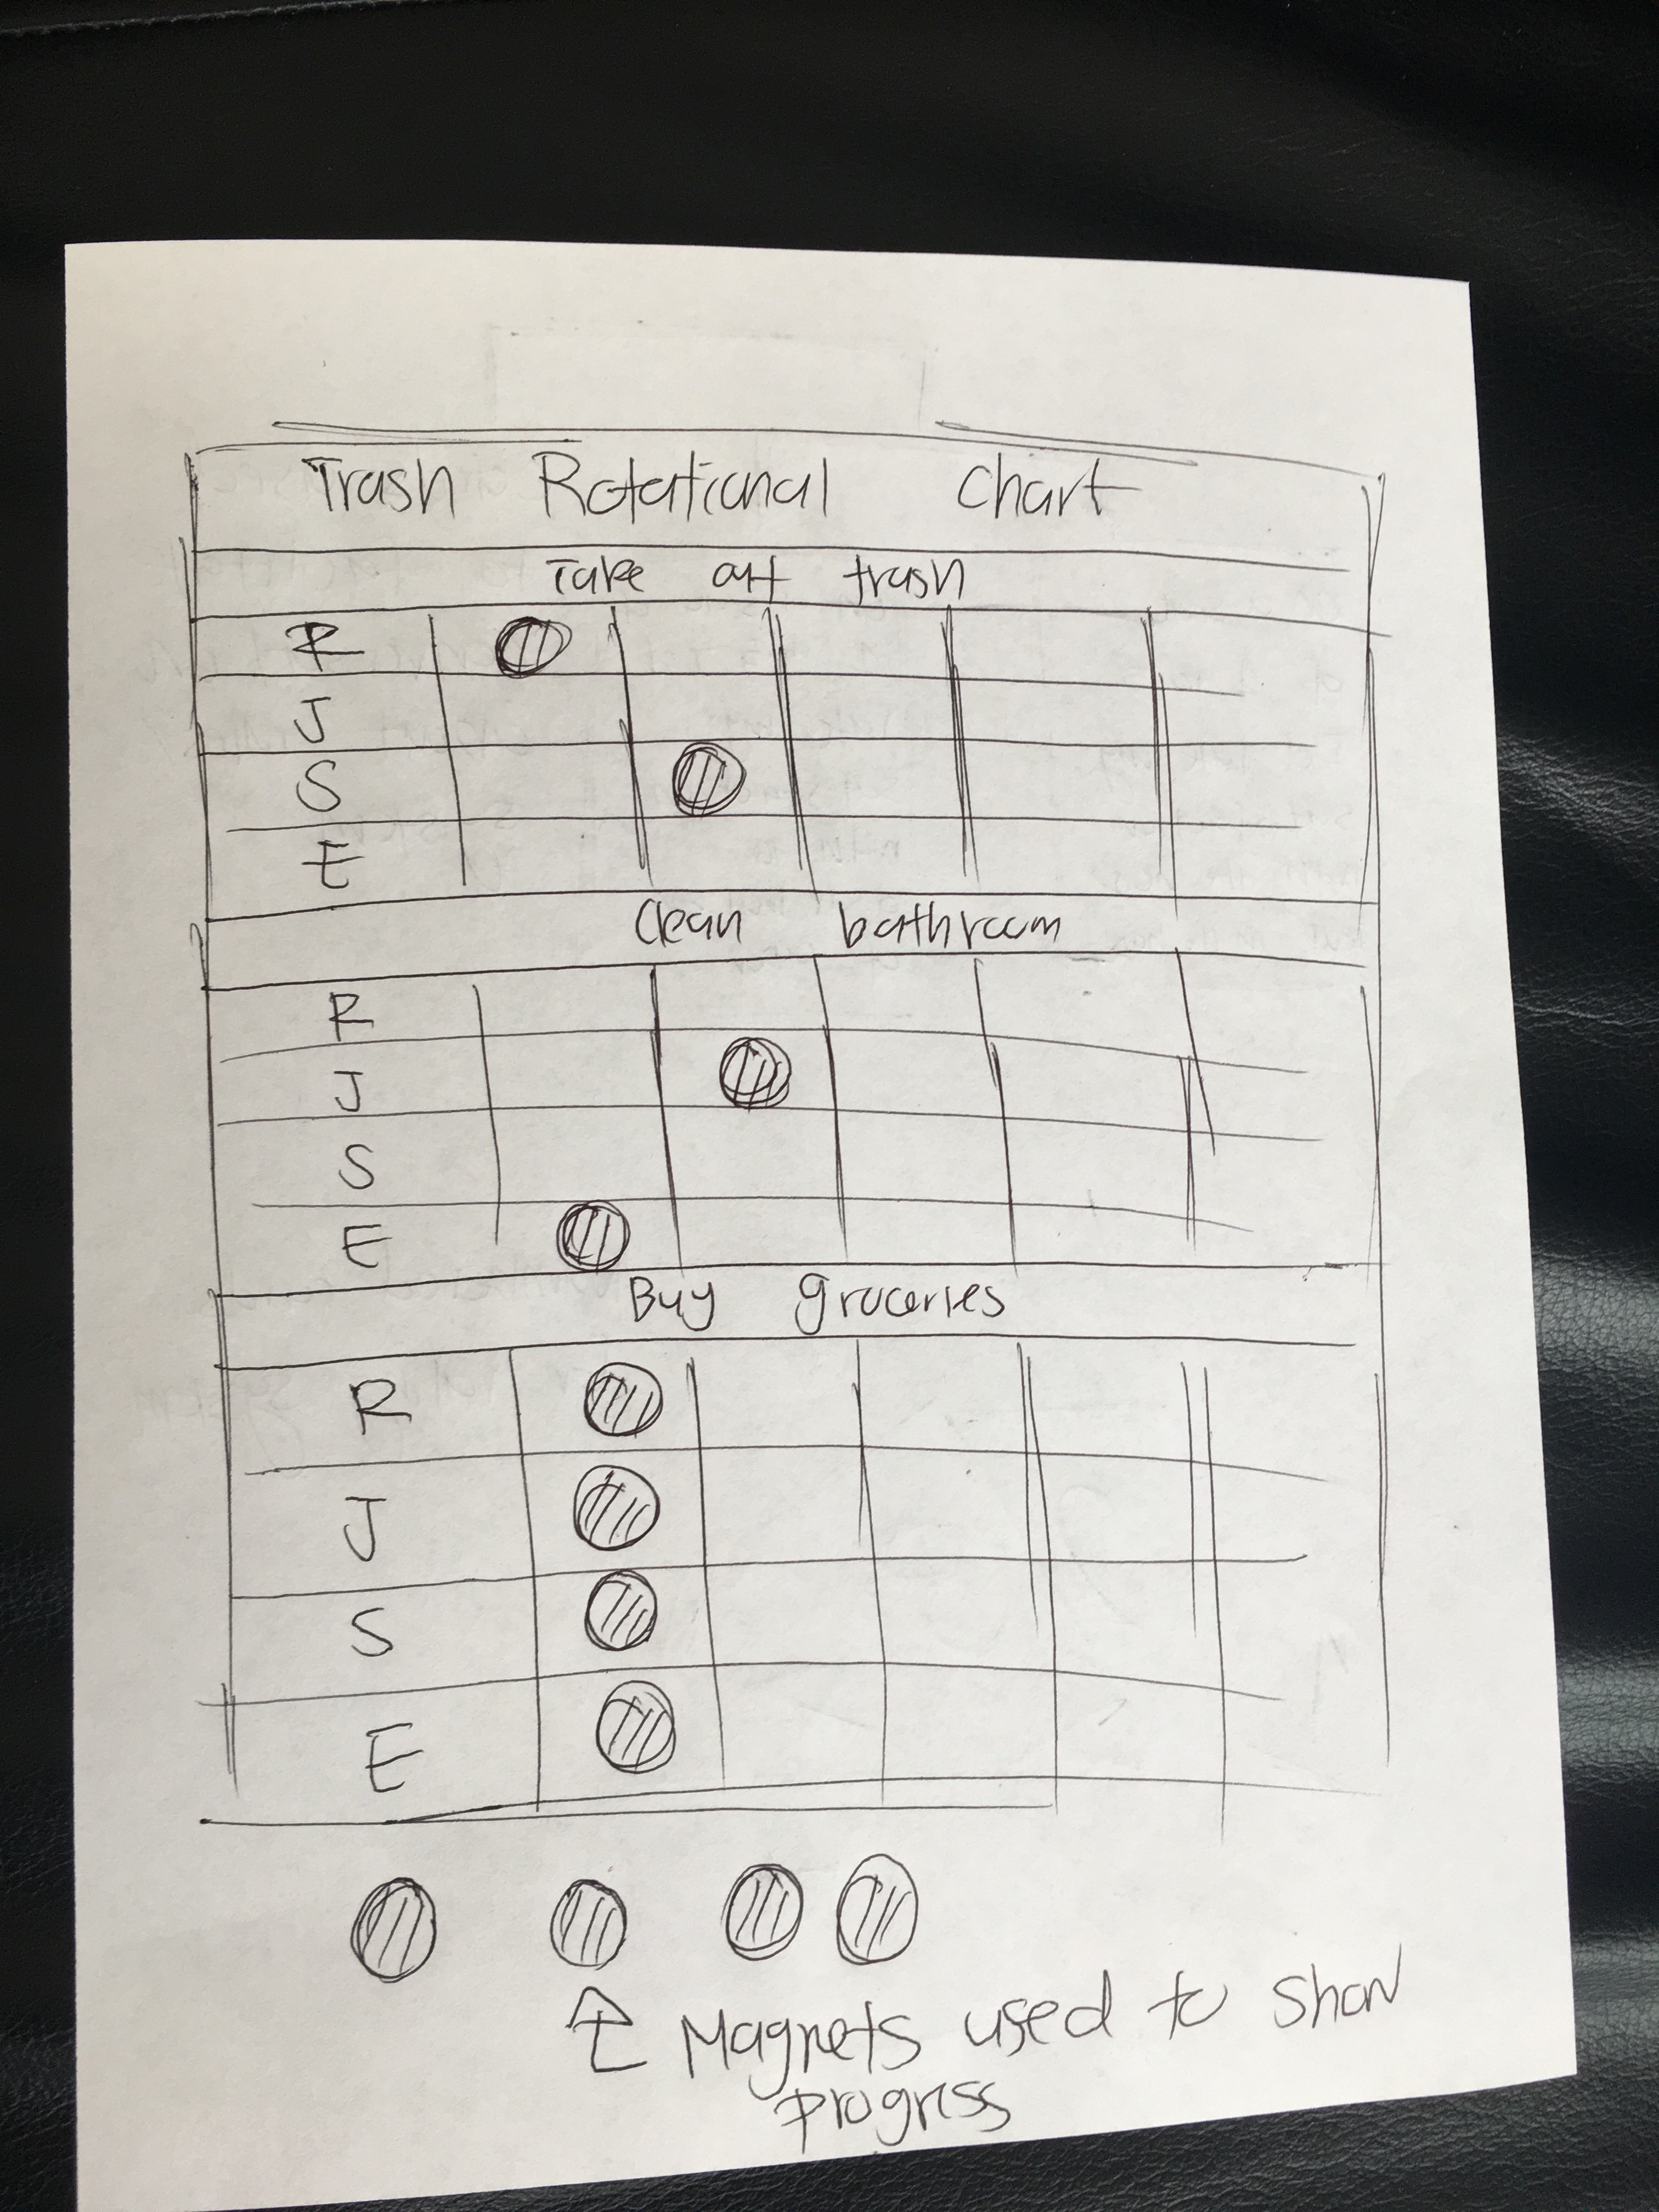 Trash Rotational Chart
Take out trash
R
J
S
E
Clean bathroom
R
J
S
E
Buy groceries
R
J
S
E
Magnets used to show
progress